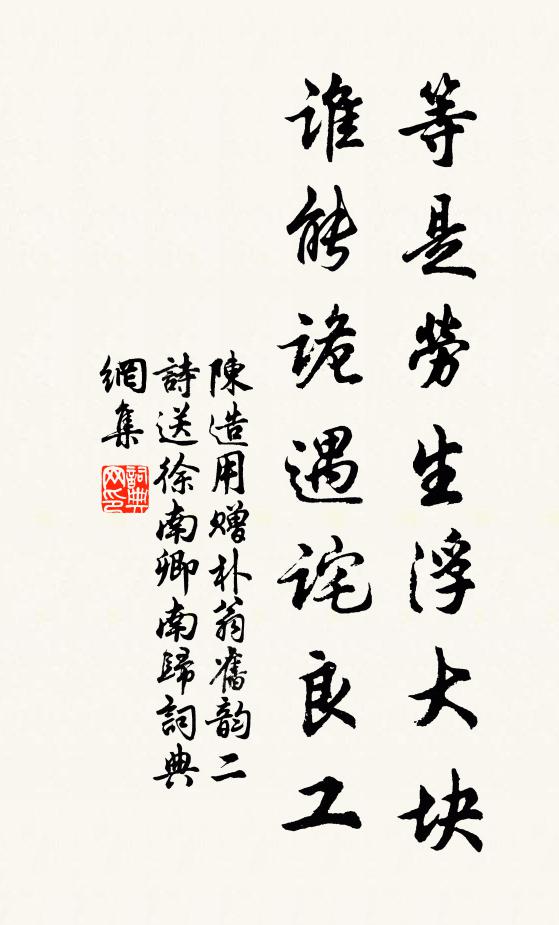 等是劳生浮大块
谁能诡遇诧良工
陳造用赠朴翁舊韵二
詩送徐南卿南歸詞典
網集
詞典
网印